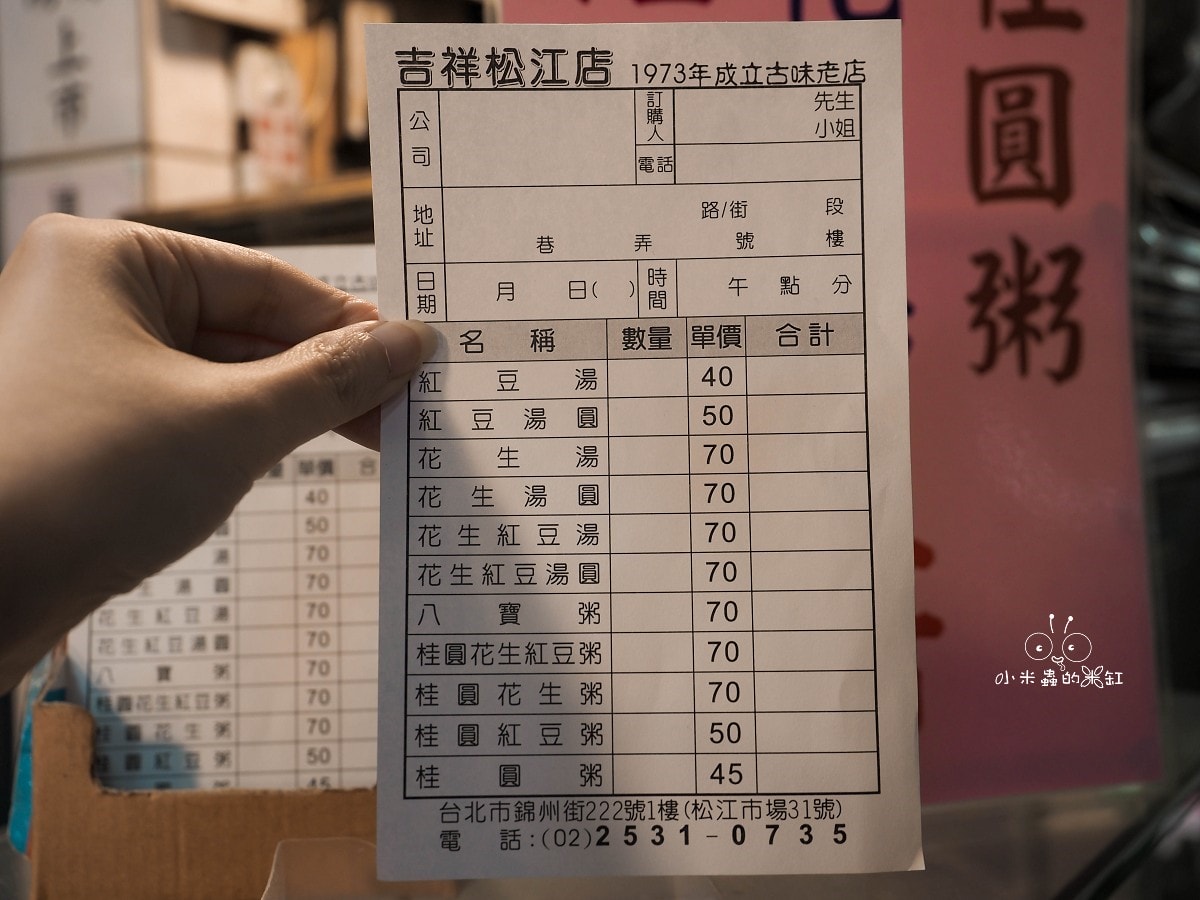 吉祥松江店 1973年成立古味老店
公司 訂購人 先生
小姐
電話
地址 路/街 段
巷 弄 號 樓
日期 月 日( ) 時間 午 點 分
名稱 數量 單價 合計
紅豆湯 40
紅豆湯圓 50
花生湯 70
花生湯圓 70
花生紅豆湯 70
花生紅豆湯圓 70
八寶粥 70
桂圓花生紅豆粥 70
桂圓花生粥 70
桂圓紅豆粥 50
桂圓粥 45
台北市錦州街222號1樓(松江市場31號)
電話:(02)2531-0735
單價 合
40
50
湯 70
生湯圓 70
花生紅豆湯 70
花生紅豆湯圓 70
八寶粥 70
桂圓花生紅豆粥 70
桂圓花生粥 70
桂圓紅豆粥 50
45
桂圓粥
小米蟲的米缸